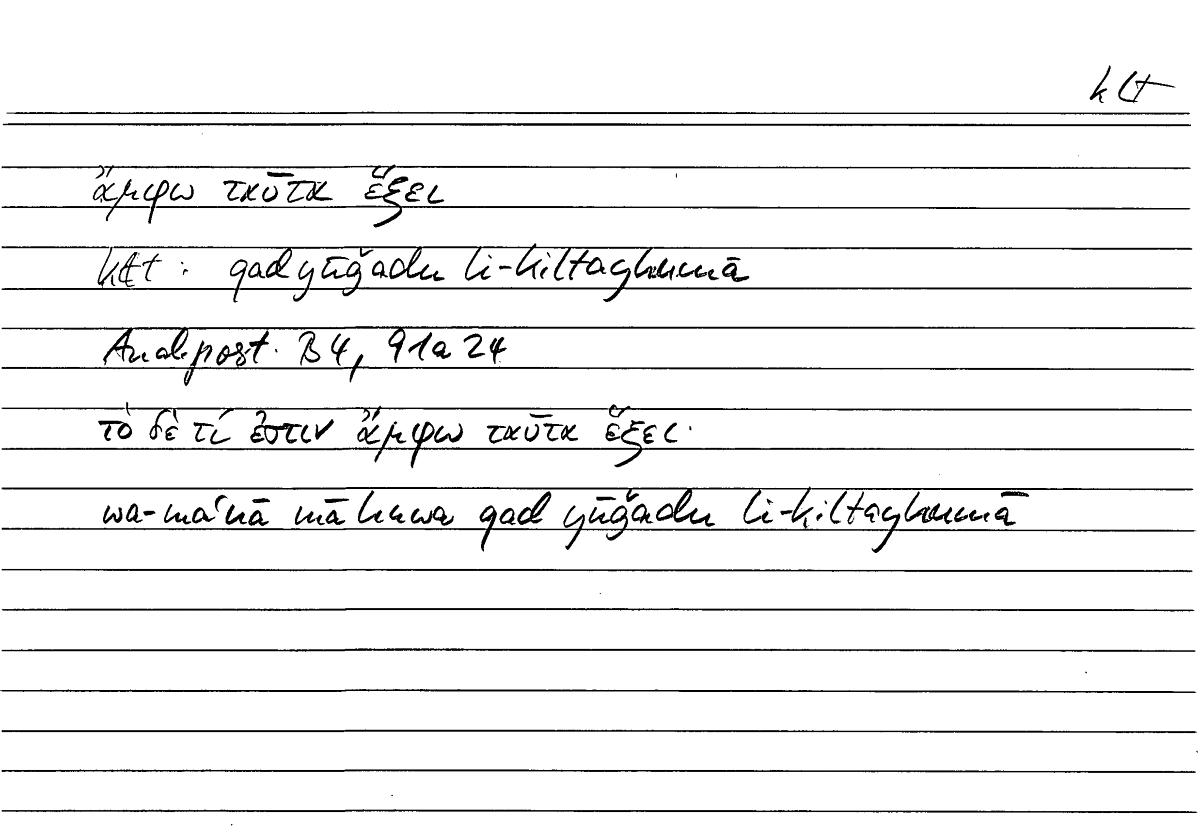 klt
ἄμφω ταῦτα ἕξει
klt : qad yūǧadu li-kiltayhumā
Anal.post. B 4, 91a 24
τὸ δὲ τί ἐστιν ἄμφω ταῦτα ἕξει·
wa-maʿnā mā huwa qad yūǧadu li-kiltayhumā